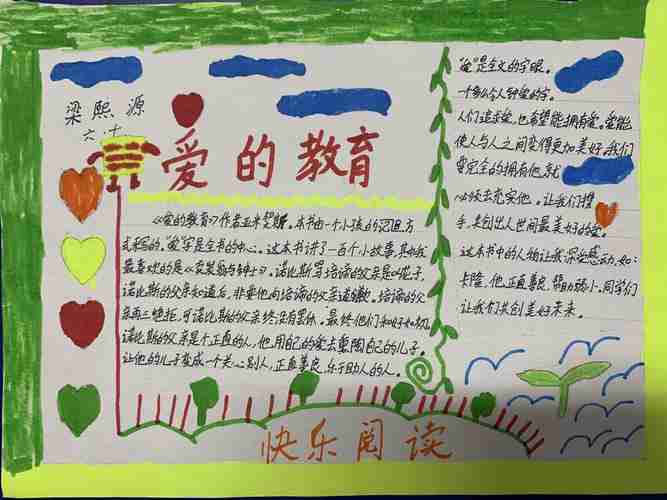 梁熙源
六十
爱的教育
《爱的教育》作者亚米契斯。本书由一个小孩的记退方
式写的。爱字是全书的中心。这本书讲了一百个小故事,其中我
最喜欢的是《卖炭翁与绅士》。诺比斯骂培谛的父亲是叫花子,
诺比斯的父亲知道后,非要他向培谛的父亲道歉。培谛的父
亲再三拒,可诺比斯的父亲终没有罢休。最终他们和好如初。
诺比斯的父亲是个正直的人,他用自己的爱去熏陶自己的儿子。
让他的儿子变成一个关心别人,正直善良,乐于助人的人。
"爱"是全文的字眼。
一个多么令人钟爱的字。
人们追求爱,也希望能拥有爱。爱能
使人与人之间变得更加美好。我们
要完全的拥有他,就
必须去充实他。让我们携
手,共创出人世间最美好的爱。
这本书中的人物让我深受感动,如:
卡隆,他正直善良,帮助弱小。同学们
让我们共创美好未来。
快乐阅读